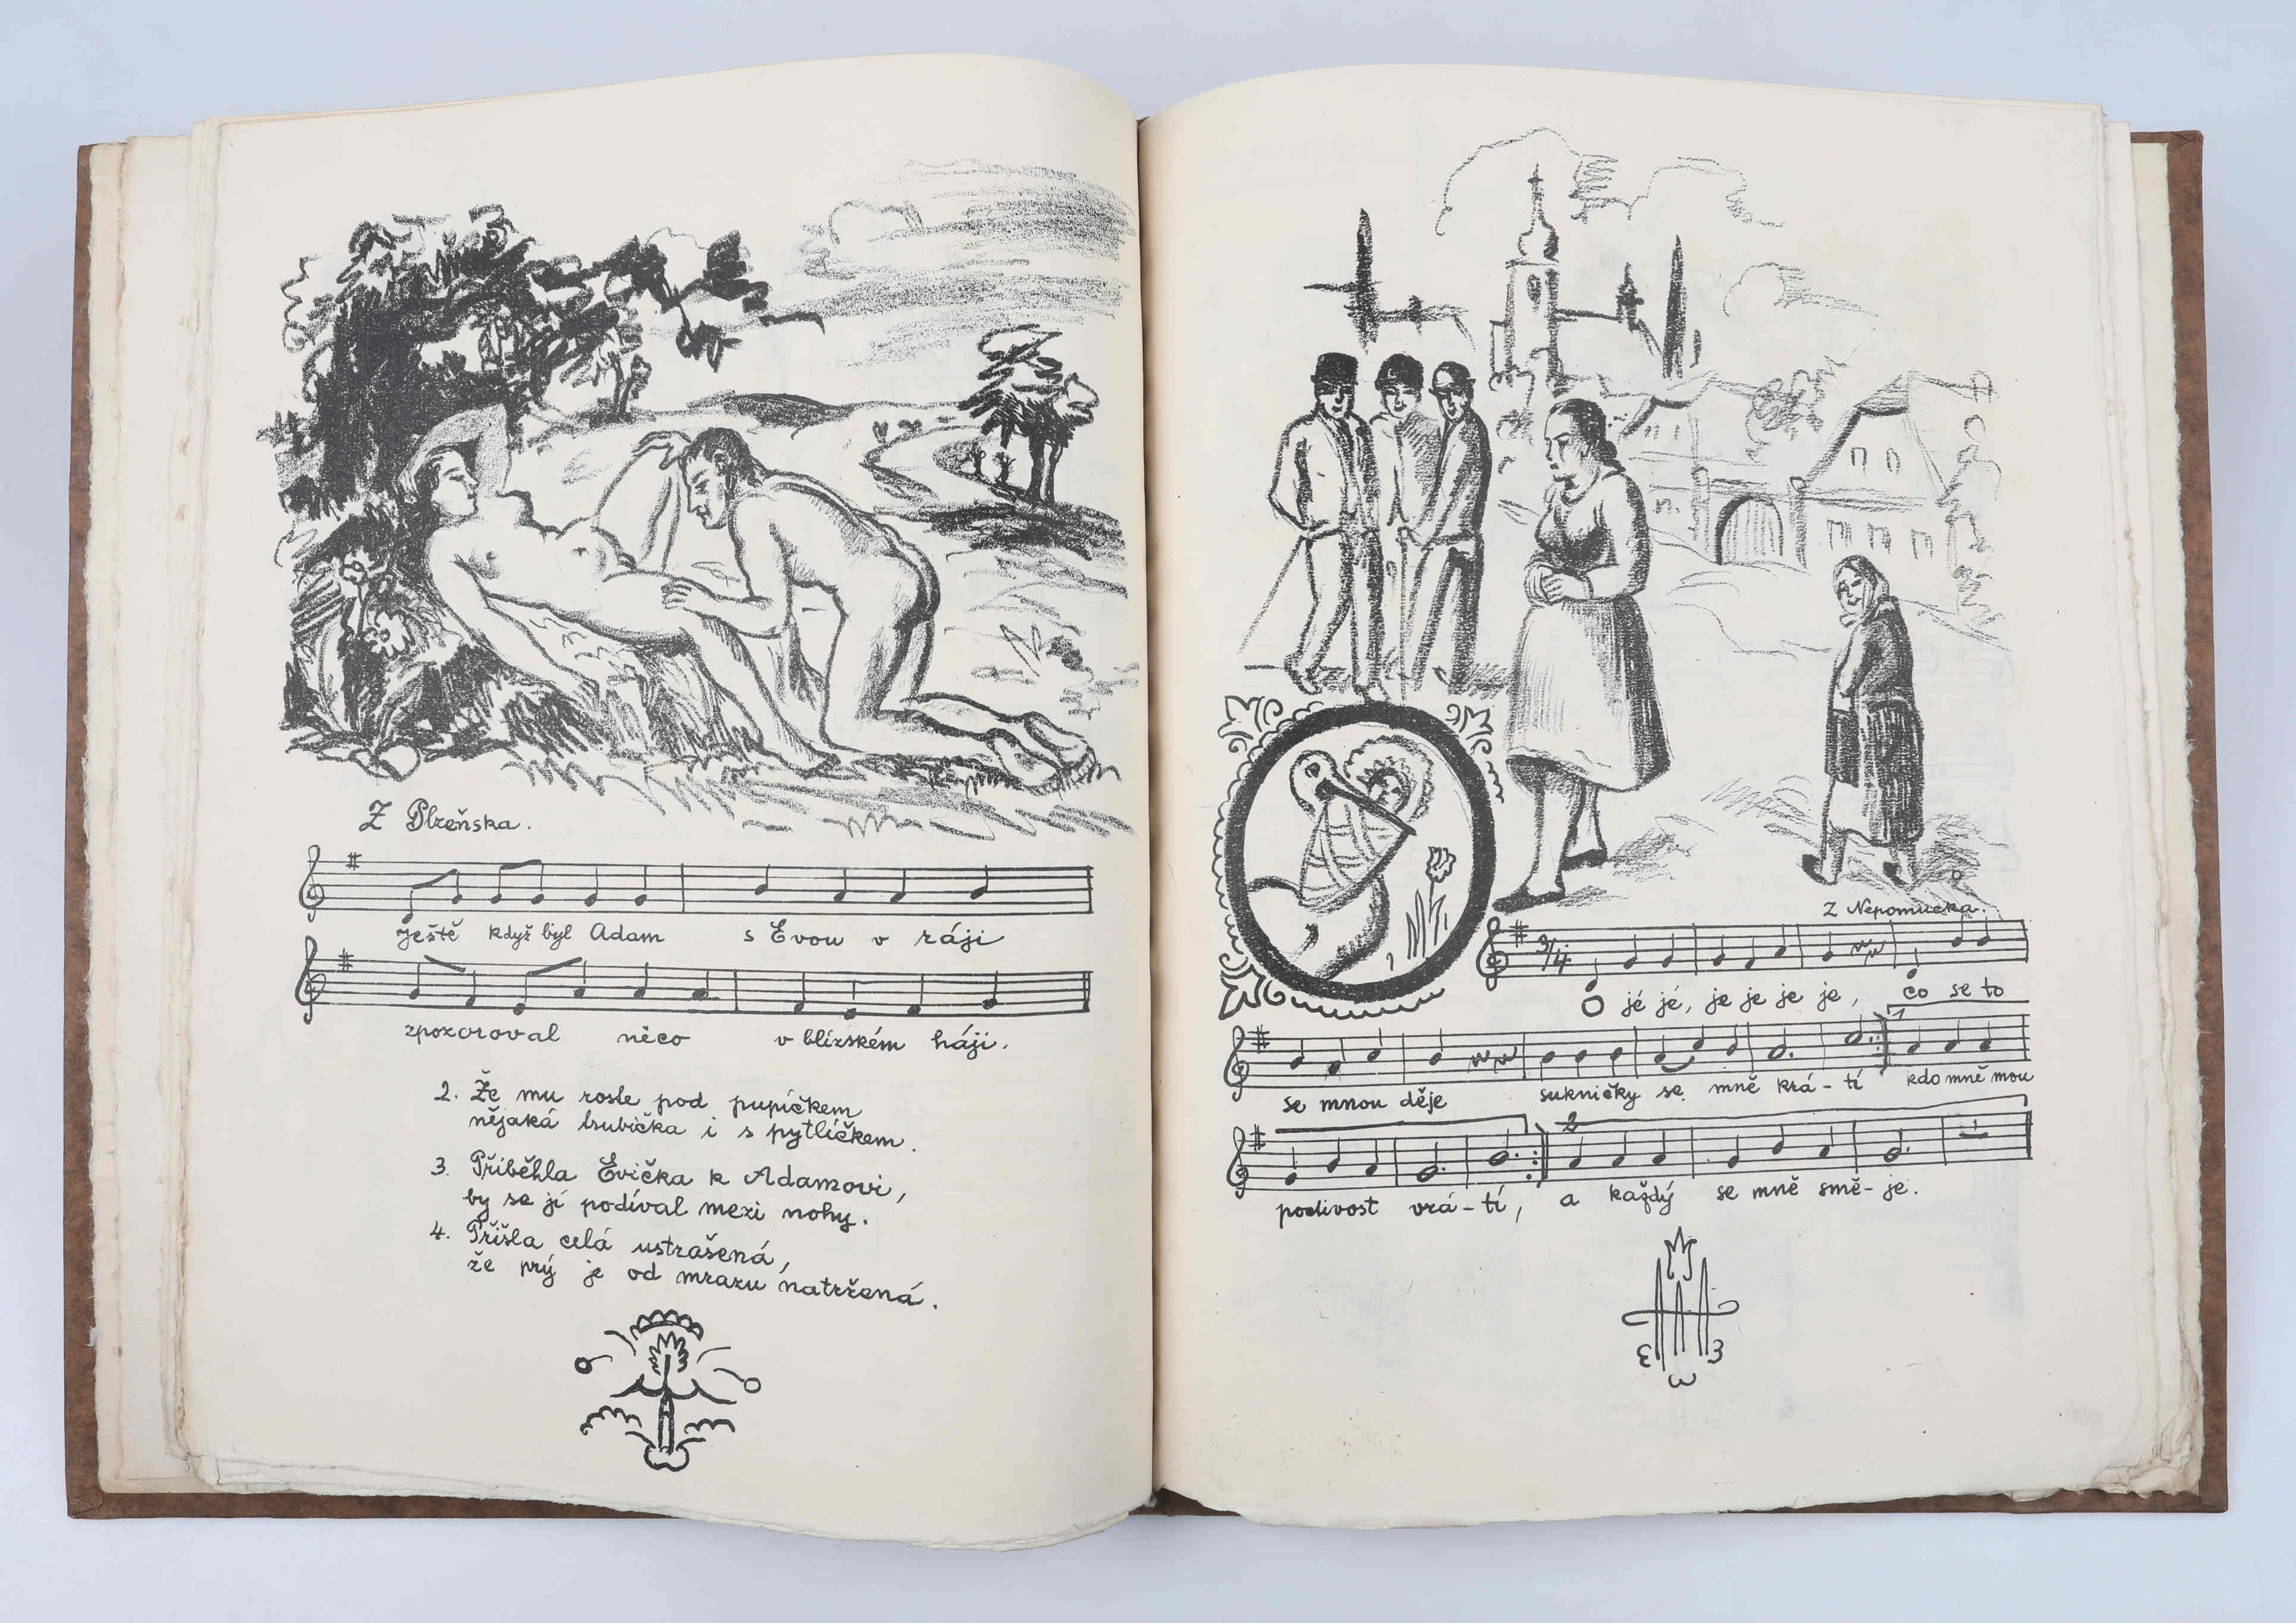 Z Plzeňska.
Ještě když byl Adam s Evou v ráji
zpozoroval něco v blízském háji.
2. Že mu roste pod pupíčkem
nějaká trubička i s pytlíčkem.
3. Přiběhla Evička k Adamovi,
by se jí podíval mezi nohy.
4. Přišla celá ustrašená,
že prý je od mrazu natržená.
Z Nepomucka.
3/4
O jé jé, je je je je, co se to
1
se mnou děje sukničky se mně krá-tí kdo mně mou
2
podivost vrá-tí, a každý se mně smě-je.